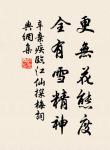 更無花態度
全有雪精神
辛棄疾臨江仙探梅詞
典網集